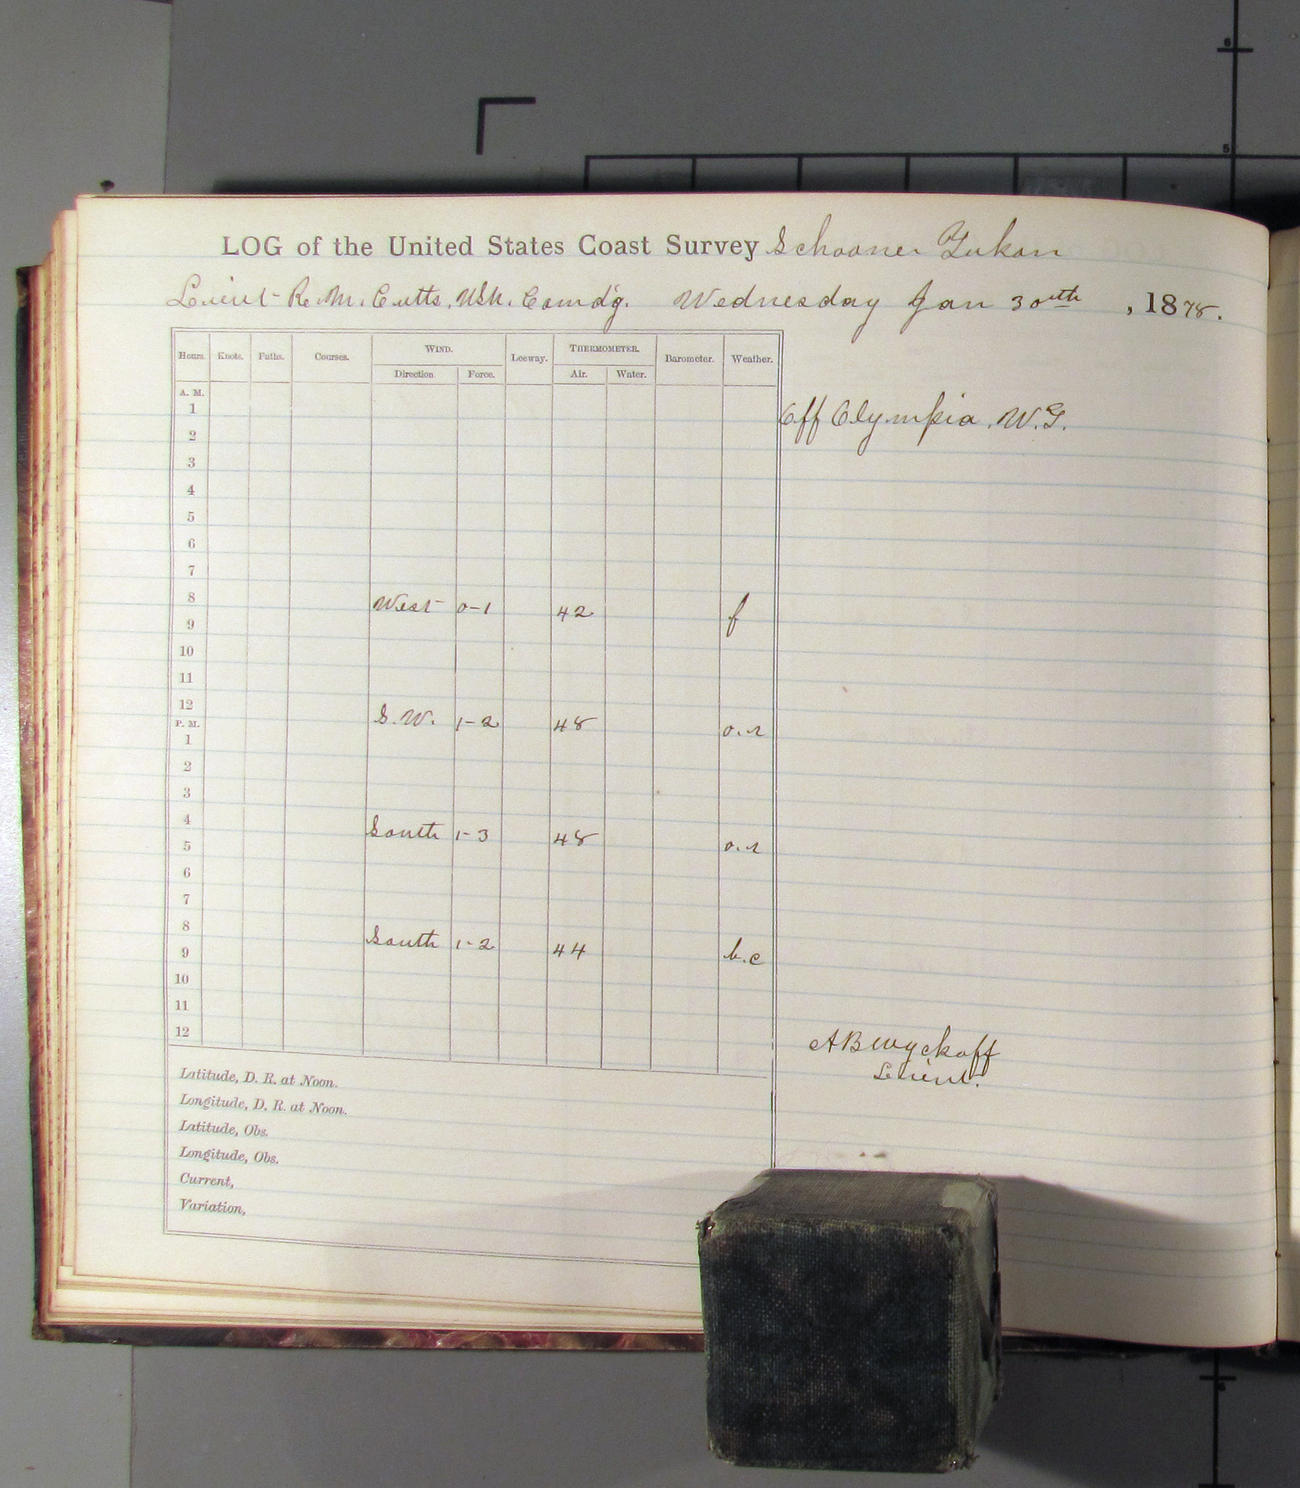 LOG of the United States Coast Survey Schooner Yukon
Lieut R. M. Cutts, USN. Comd'g. Wednesday Jan 30th, 1878.
Hours. Knots. Faths. Courses. WIND. Leeway. THERMOMETER. Barometer. Weather.
Direction. Force. Air. Water.
A. M.
1
Off Olympia, W.T.
2
3
4
5
6
7
8 West 0-1 42 f
9
10
11
12 S.W. 1-2 48 o.r
P. M.
1
2
3
4 South 1-3 48 o.r
5
6
7
8 South 1-2 44 b.c
9
10
11
12
A B Wyckoff
Lieut.
Latitude, D. R. at Noon.
Longitude, D. R. at Noon.
Latitude, Obs.
Longitude, Obs.
Current,
Variation,
6
5